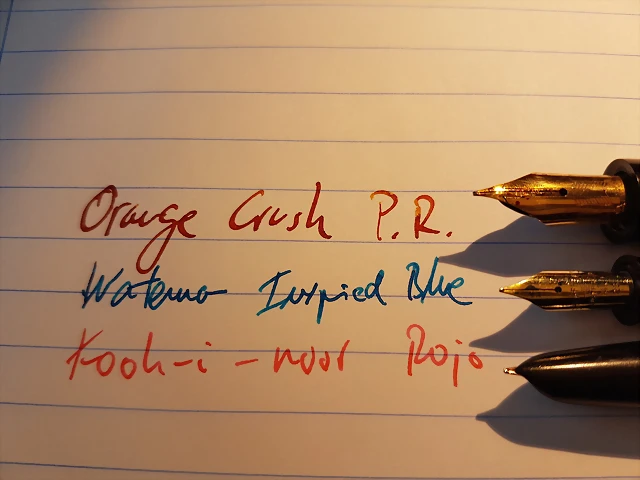 Orange Crush P.R.
Waterman Inspired Blue
Kooh-i-noor Rojo